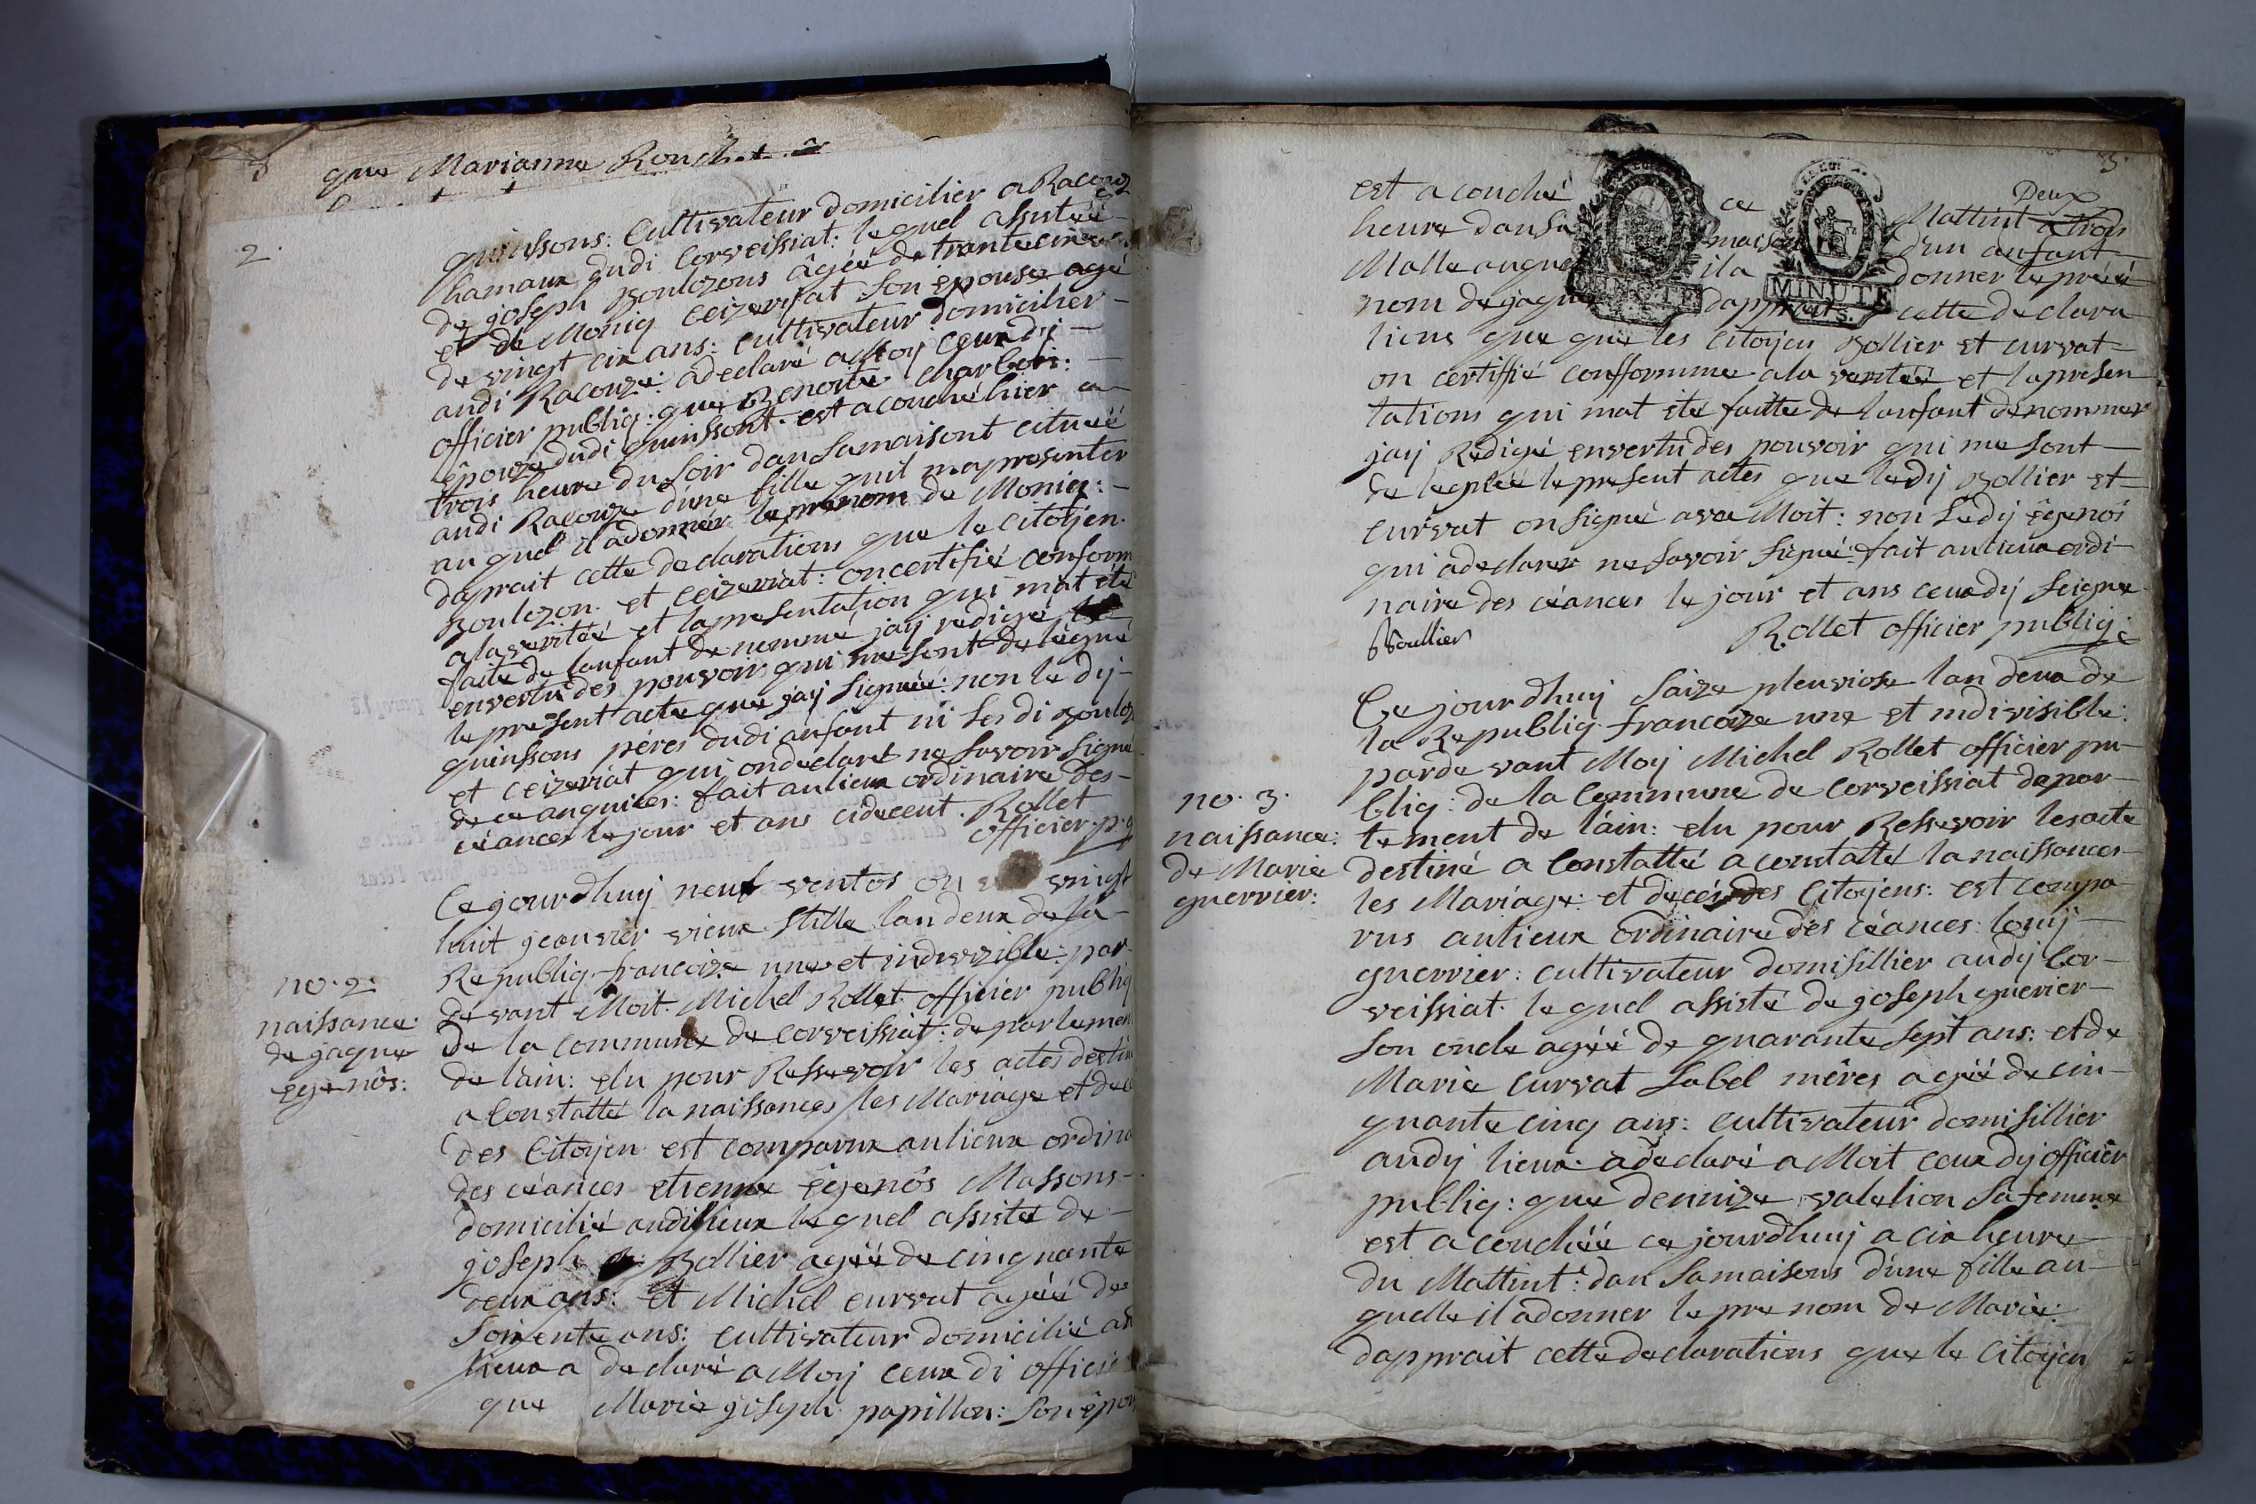 que Marianne Rouch
2
quinssons: Cultivateur domicilier a Racouz
hamaux dudi Corveissiat: lequel assistée
de joseph Boulozons âgéé de trante cinq
et de Moniq Ceizeriat son epouse agé
de vingt cix ans: cultivateur domicilier
audi Racouze: adeclaré a Moy ceux di
officier publiq: que Benoite Charbon:
êpouze dudi quinssont est acouché hier a
trois heure du soir dan samaisont cituéé
audi Racouze d'une fille quil ma presenter
au quel il adonnér le prenom de Moniq:
daprait cette declarations que le citoyen
Boulozon et Ceizeriat: on certifié conform
a la veritéé et la presentation qui mat été
faite de lanfant denommé jay redigé
envertu des pouvoir qui me sont delégué
le present acte que jay signéé: non le dy
quinssons péres dudi anfant ni les di Bouloz
et Ceizeriat qui ondeclaret ne savoir signé
de ce anquiler: fait au lieux ordinaire des
céances le jour et ans cidecent. Rollet
officier p.q
no. 2.
naissance
de jaque
egenôs:
Ce jourdhuy neuf ventos ou vingt
huit jeanvier vieux stille lan deux de la
Republiq francoize une et indivizible: par
devant Moit Michel Rollet officier publiq
de la commune de corveissiat: departemen
de l'ain: elu pour Ressevoir les actes destin
a Constatté la naissances les Mariage et dec
des Citoyen est comparux aulieux ordina
des céances etienne êgenôs Massons
domicilié audi lieux lequel assisté de
joseph Bollier agéé de cinquante
deux ans: et Michel curvat agéé de
soixente ans: cultivateur domicilié au
lieux a declaré a Moy ceux di officie
que Marie joseph papillon: son epou
3
Deux
est acouché ce Mattint
heure dan sa maison d'un anfant
Malle auque il a donner le préé
nom de jaque daprait cette declara
tions que que les citoyen Bollier et curvat
on certiffié confformme a la veritéé et lapresen
tations qui mat ete faitte de lanfant denommer
jay Redigé envertu des pouvoir qui me sont
de legéé le present actes que ledy Bollier et
curvat on signé avec Moit: non ledy êgenos
qui adeclarer ne savoir signé: fait aulieux ordi
naire des céances le jour et ans ceuxdy seigne
Boullier Rollet officier publiq:
no. 3.
naissance:
de Marie
guerrier:
Ce jourdhuy saize pleuviose lan deux de
la Republiq francoize une et indivisible:
pardevant Moy Michel Rollet officier pu
bliq: de la Commune de corveissiat depar
tement de l'ain: elu pour Ressevoir les acte
destiné a Constatté a constatté la naissances
les Mariage: et decéz des citoyens: est compa
rus aulieux ordinaire des céances: louij
guerrier: cultivateur domisillier audy Cor
veissiat lequel assisté de joseph guerier
son oncle agéé de quarante sept ans: et de
Marie curvat sabel mêres agéé de cin
quante cinq ans: cultivateur domisillier
audy lieux: adeclaré a Moit ceuxdy officier
publiq: que dennize valetion safemme
est acouchéé ce jourdhuy a cix heure
du Mattint: dan samaisons d'une fille au
quelle il adonner le pre nom de Marie:
dapprait cette declarations que le Citoyen
MINUTE
MINUTE